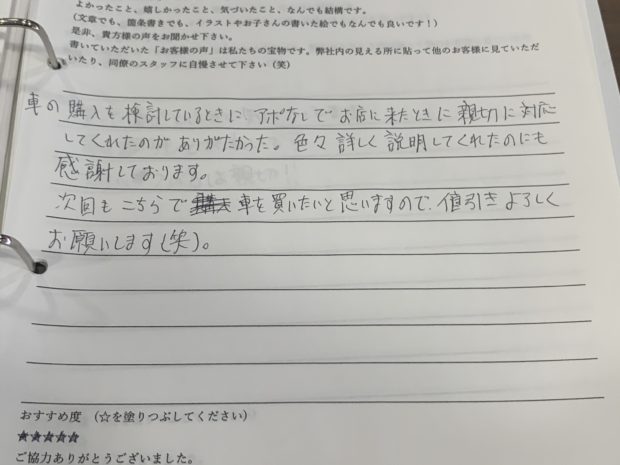 よかったこと、嬉しかったこと、気づいたこと、なんでも結構です。
(文章でも、箇条書きでも、イラストやお子さんの書いた絵でもなんでも良いです!)
是非、貴方様の声をお聞かせ下さい。
書いていただいた「お客様の声」は私たちの宝物です。弊社内の見える所に貼って他のお客様に見ていただ
いたり、同僚のスタッフに自慢させて下さい(笑)
車の購入を検討しているときに、アポなしでお店に来たときに親切に対応
してくれたのがありがたかった。色々詳しく説明してくれたのにも
感謝しております。
次回もこちらで車を買いたいと思いますので、値引きよろしく
お願いします(笑)。
おすすめ度 (☆を塗りつぶしてください)
★★★★★
ご協力ありがとうございました。